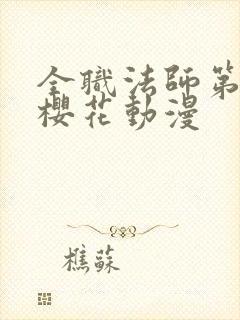 全職法師第
櫻花動漫
樵蘇